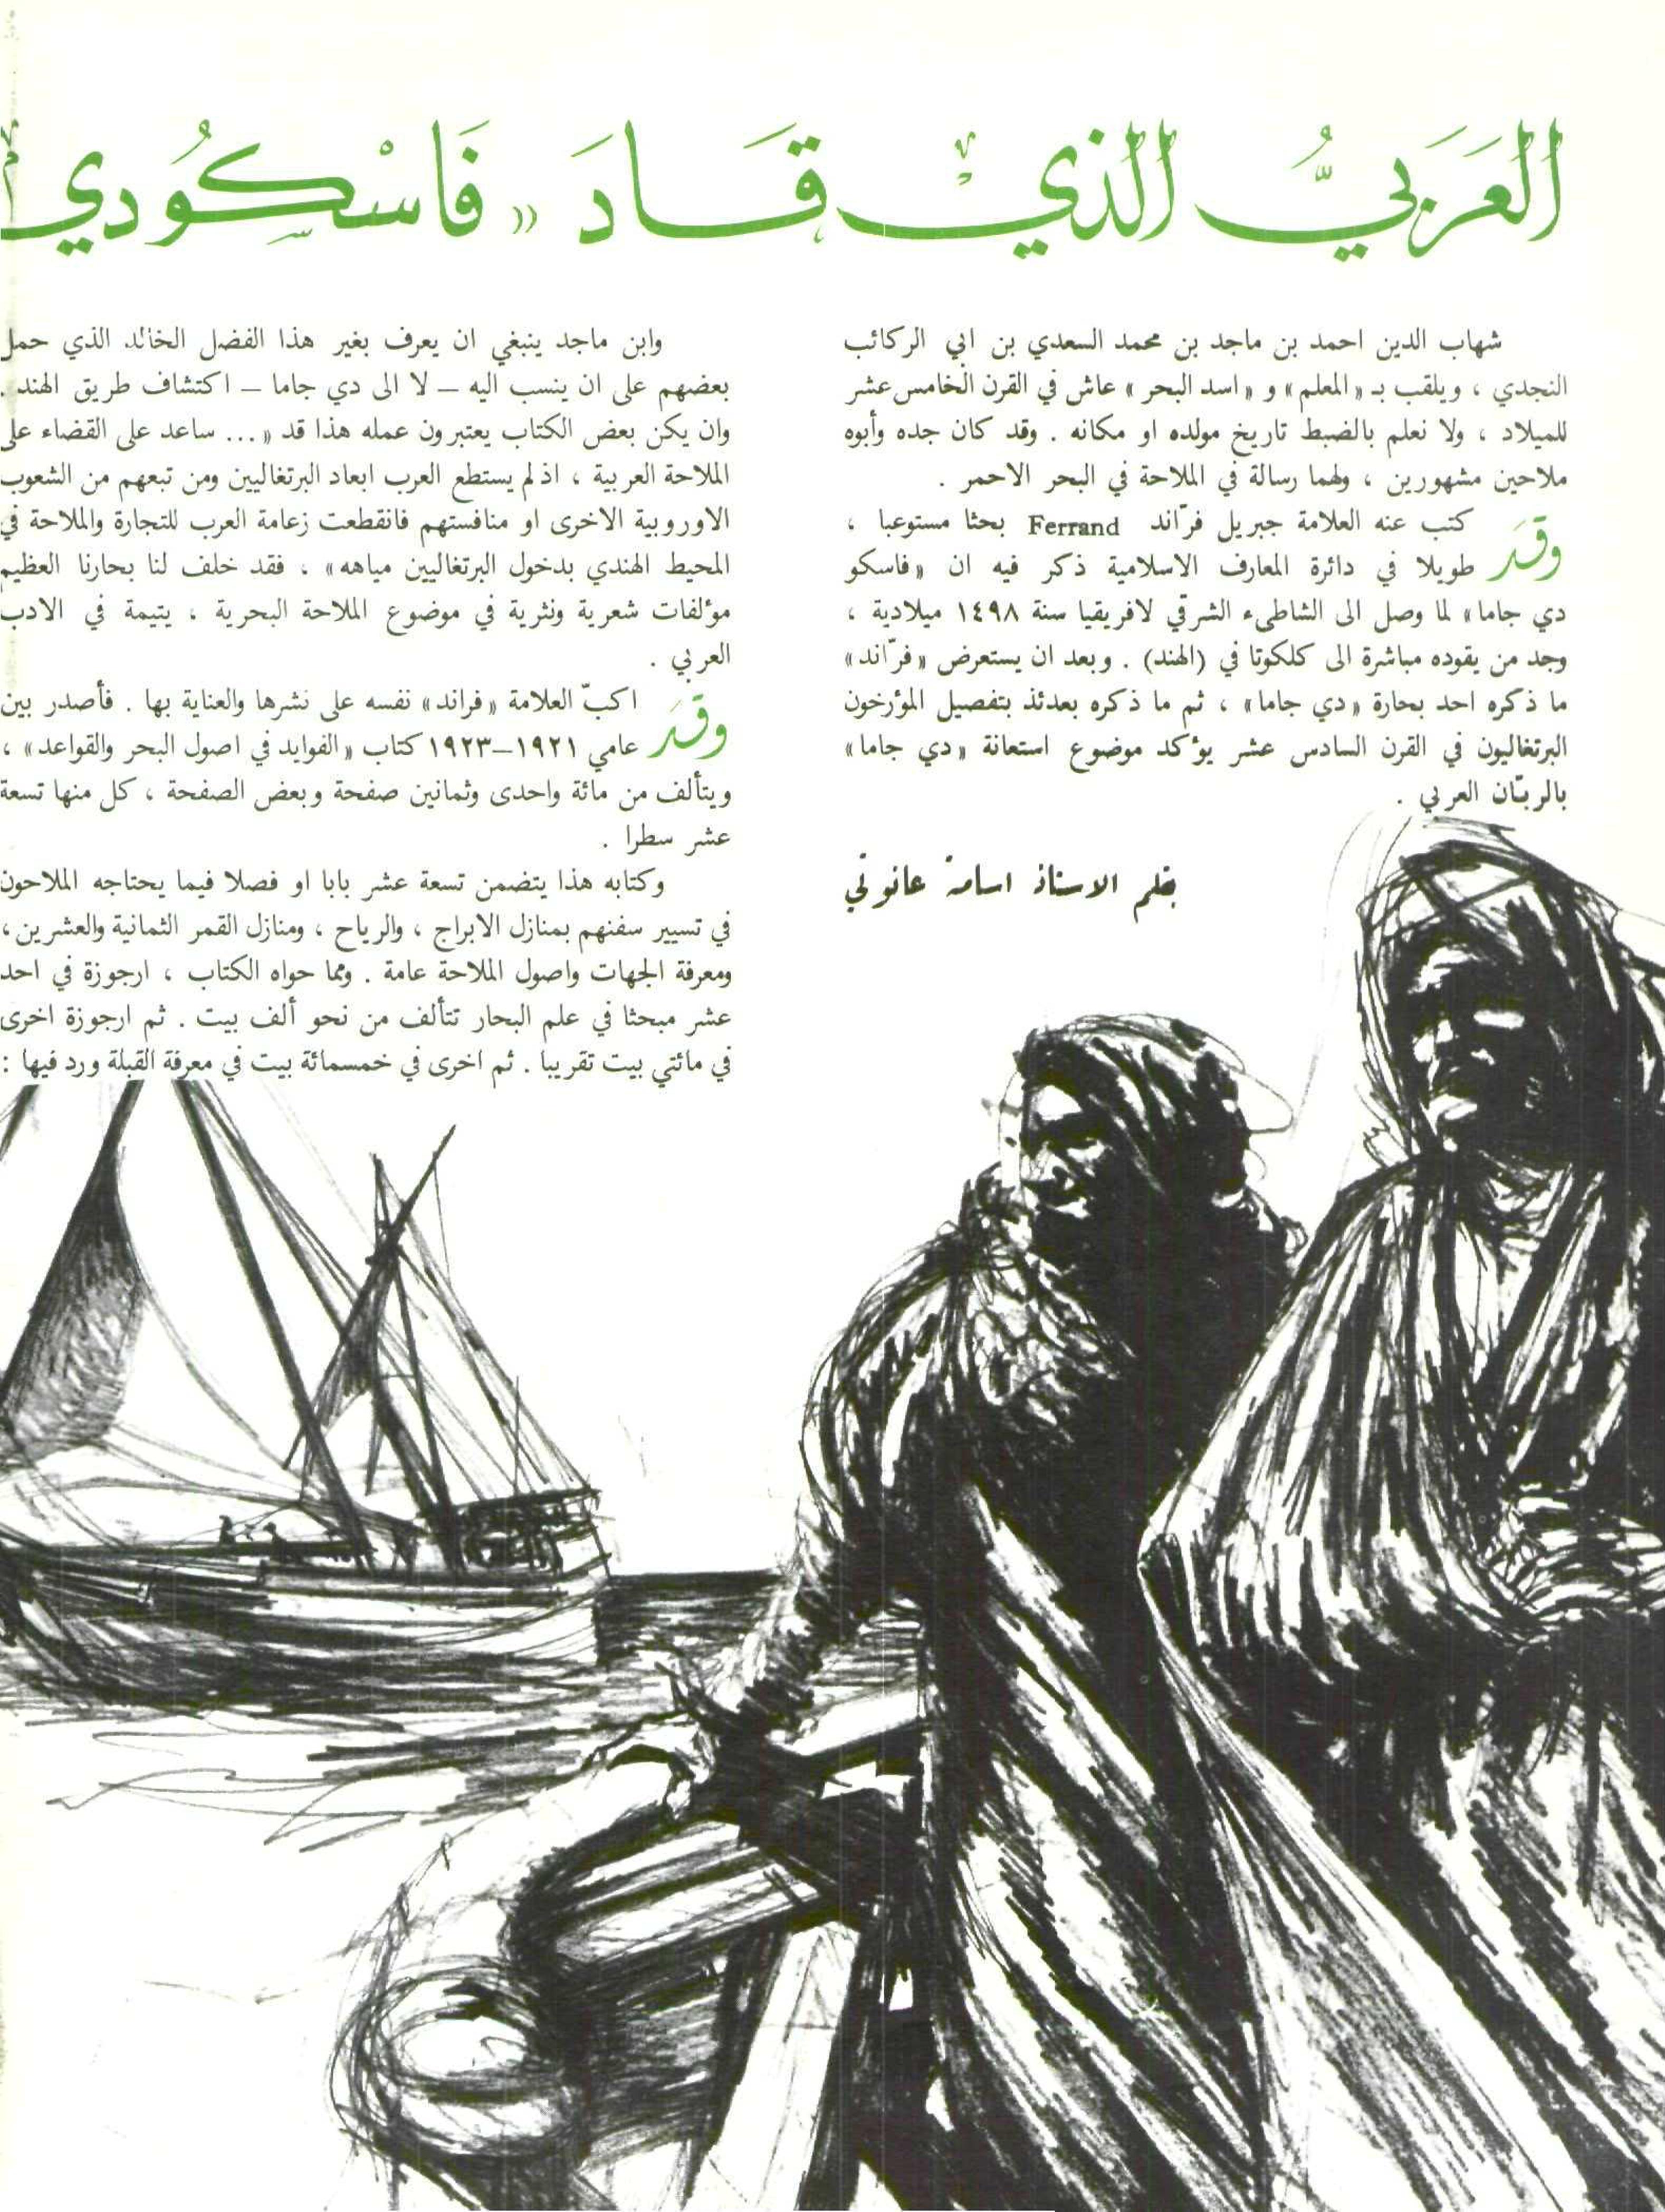 العَرَبيُّ الذيْ قَادَ «فَاسْكُودي
شهاب الدين احمد بن ماجد بن محمد السعدي بن ابي الركائب
النجدي ، ويلقب بـ «المعلم» و «اسد البحر» عاش في القرن الخامس عشر
للميلاد ، ولا نعلم بالضبط تاريخ مولده او مكانه . وقد كان جده وأبوه
ملاحين مشهورين ، ولهما رسالة في الملاحة في البحر الاحمر .
وقَد كتب عنه العلامة جبريل فرّاند Ferrand بحثا مستوعبا ،
طويلا في دائرة المعارف الاسلامية ذكر فيه ان «فاسكو
دي جاما» لما وصل الى الشاطىء الشرقي لافريقيا سنة ١٤٩٨ ميلادية ،
وجد من يقوده مباشرة الى كلكوتا في (الهند) . وبعد ان يستعرض «فرّاند»
ما ذكره احد بحارة «دي جاما» ، ثم ما ذكره بعدئذ بتفصيل المؤرخون
البرتغاليون في القرن السادس عشر يؤكد موضوع استعانة «دي جاما»
بالربّان العربي .
بقلم الاستاذ اسامة عانوتي
وابن ماجد ينبغي ان يعرف بغير هذا الفضل الخالد الذي حمل
بعضهم على ان ينسب اليه – لا الى دي جاما – اكتشاف طريق الهند .
وان يكن بعض الكتاب يعتبرون عمله هذا قد «... ساعد على القضاء على
الملاحة العربية ، اذ لم يستطع العرب ابعاد البرتغاليين ومن تبعهم من الشعوب
الاوروبية الاخرى او منافستهم فانقطعت زعامة العرب للتجارة والملاحة في
المحيط الهندي بدخول البرتغاليين مياهه» ، فقد خلف لنا بحارنا العظيم
مؤلفات شعرية ونثرية في موضوع الملاحة البحرية ، يتيمة في الادب
العربي .
وقَد اكبّ العلامة «فراند» نفسه على نشرها والعناية بها . فأصدر بين
عامي ١٩٢١–١٩٢٣ كتاب «الفوايد في اصول البحر والقواعد» ،
ويتألف من مائة واحدى وثمانين صفحة وبعض الصفحة ، كل منها تسعة
عشر سطرا .
وكتابه هذا يتضمن تسعة عشر بابا او فصلا فيما يحتاجه الملاحون
في تسيير سفنهم بمنازل الابراج ، والرياح ، ومنازل القمر الثمانية والعشرين ،
ومعرفة الجهات واصول الملاحة عامة . ومما حواه الكتاب ، ارجوزة في احد
عشر مبحثا في علم البحار تتألف من نحو ألف بيت . ثم ارجوزة اخرى
في مائتي بيت تقريبا . ثم اخرى في خمسمائة بيت في معرفة القبلة ورد فيها :